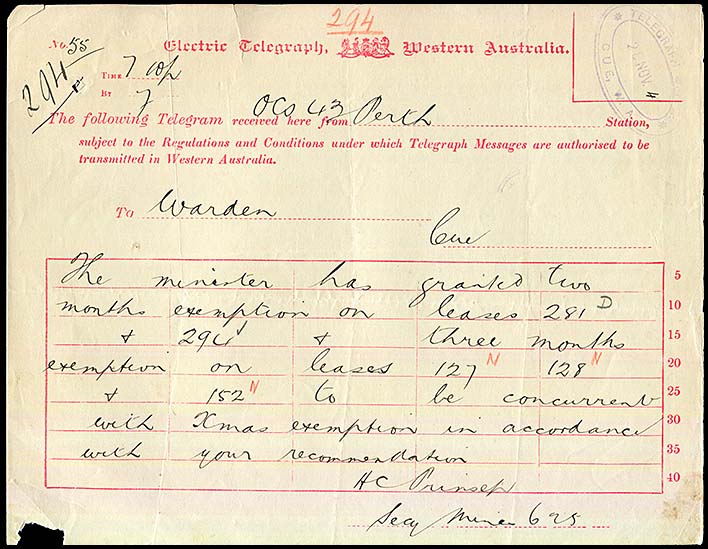 294
No. 55
Electric Telegraph, Western Australia.
294
TIME 7
BY 7
The following Telegram received here from OCS 43 Perth Station,
subject to the Regulations and Conditions under which Telegraph Messages are authorised to be
transmitted in Western Australia.
To Warden
Cue
The minister has granted two 5
months exemption on leases 281 D 10
& 294 & three months 15
exemption on leases 127 N 128 N 20
& 152 N to be concurrent 25
with Xmas exemption in accordance 30
with your recommendation 35
HC Prinsep 40
Secy Mines 625
TELEGRAPH
2 NOV
CUE